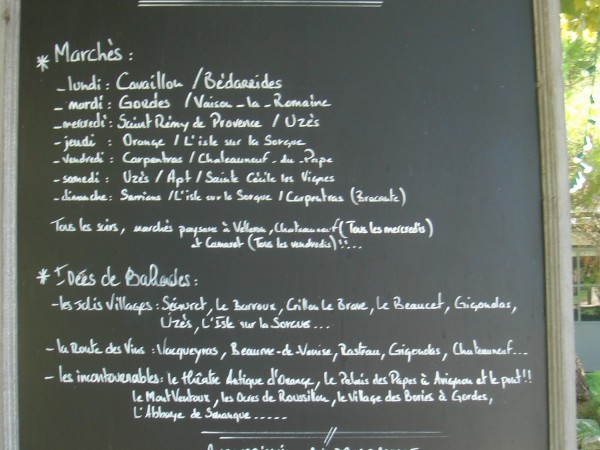 * Marchès :
- lundi : Cavaillon / Bédarrides
- mardi : Gordes / Vaison-la-Romaine
- mercredi : Saint Rémy de Provence / Uzès
- jeudi : Orange / L'isle sur la Sorgue
- vendredi : Carpentras / Chateauneuf-du-Pape
- samedi : Uzès / Apt / Sainte Cécile les Vignes
- dimanche : Sarrians / L'isle sur la Sorgue / Carpentras (Brocante)
Tous les soirs, marchés paysans à Velleron, Chateauneuf (Tous les mercredis)
et Camaret (Tous les vendredis)!!...
* Idées de Balades :
- les Jolis Villages : Séguret, Le Barroux, Crillon Le Brave, Le Beaucet, Gigondas,
Uzès, L'Isle sur la Sorgue...
- la Route des Vins : Vacqueyras, Beaume-de-Venise, Rasteau, Gigondas, Chateauneuf...
- les incontournables : le théâtre Antique d'Orange, le Palais des Papes à Avignon et le pont!!
le Mont Ventoux, les Ocres de Roussillon, le Village des Bories à Gordes,
L'Abbaye de Senanque.....